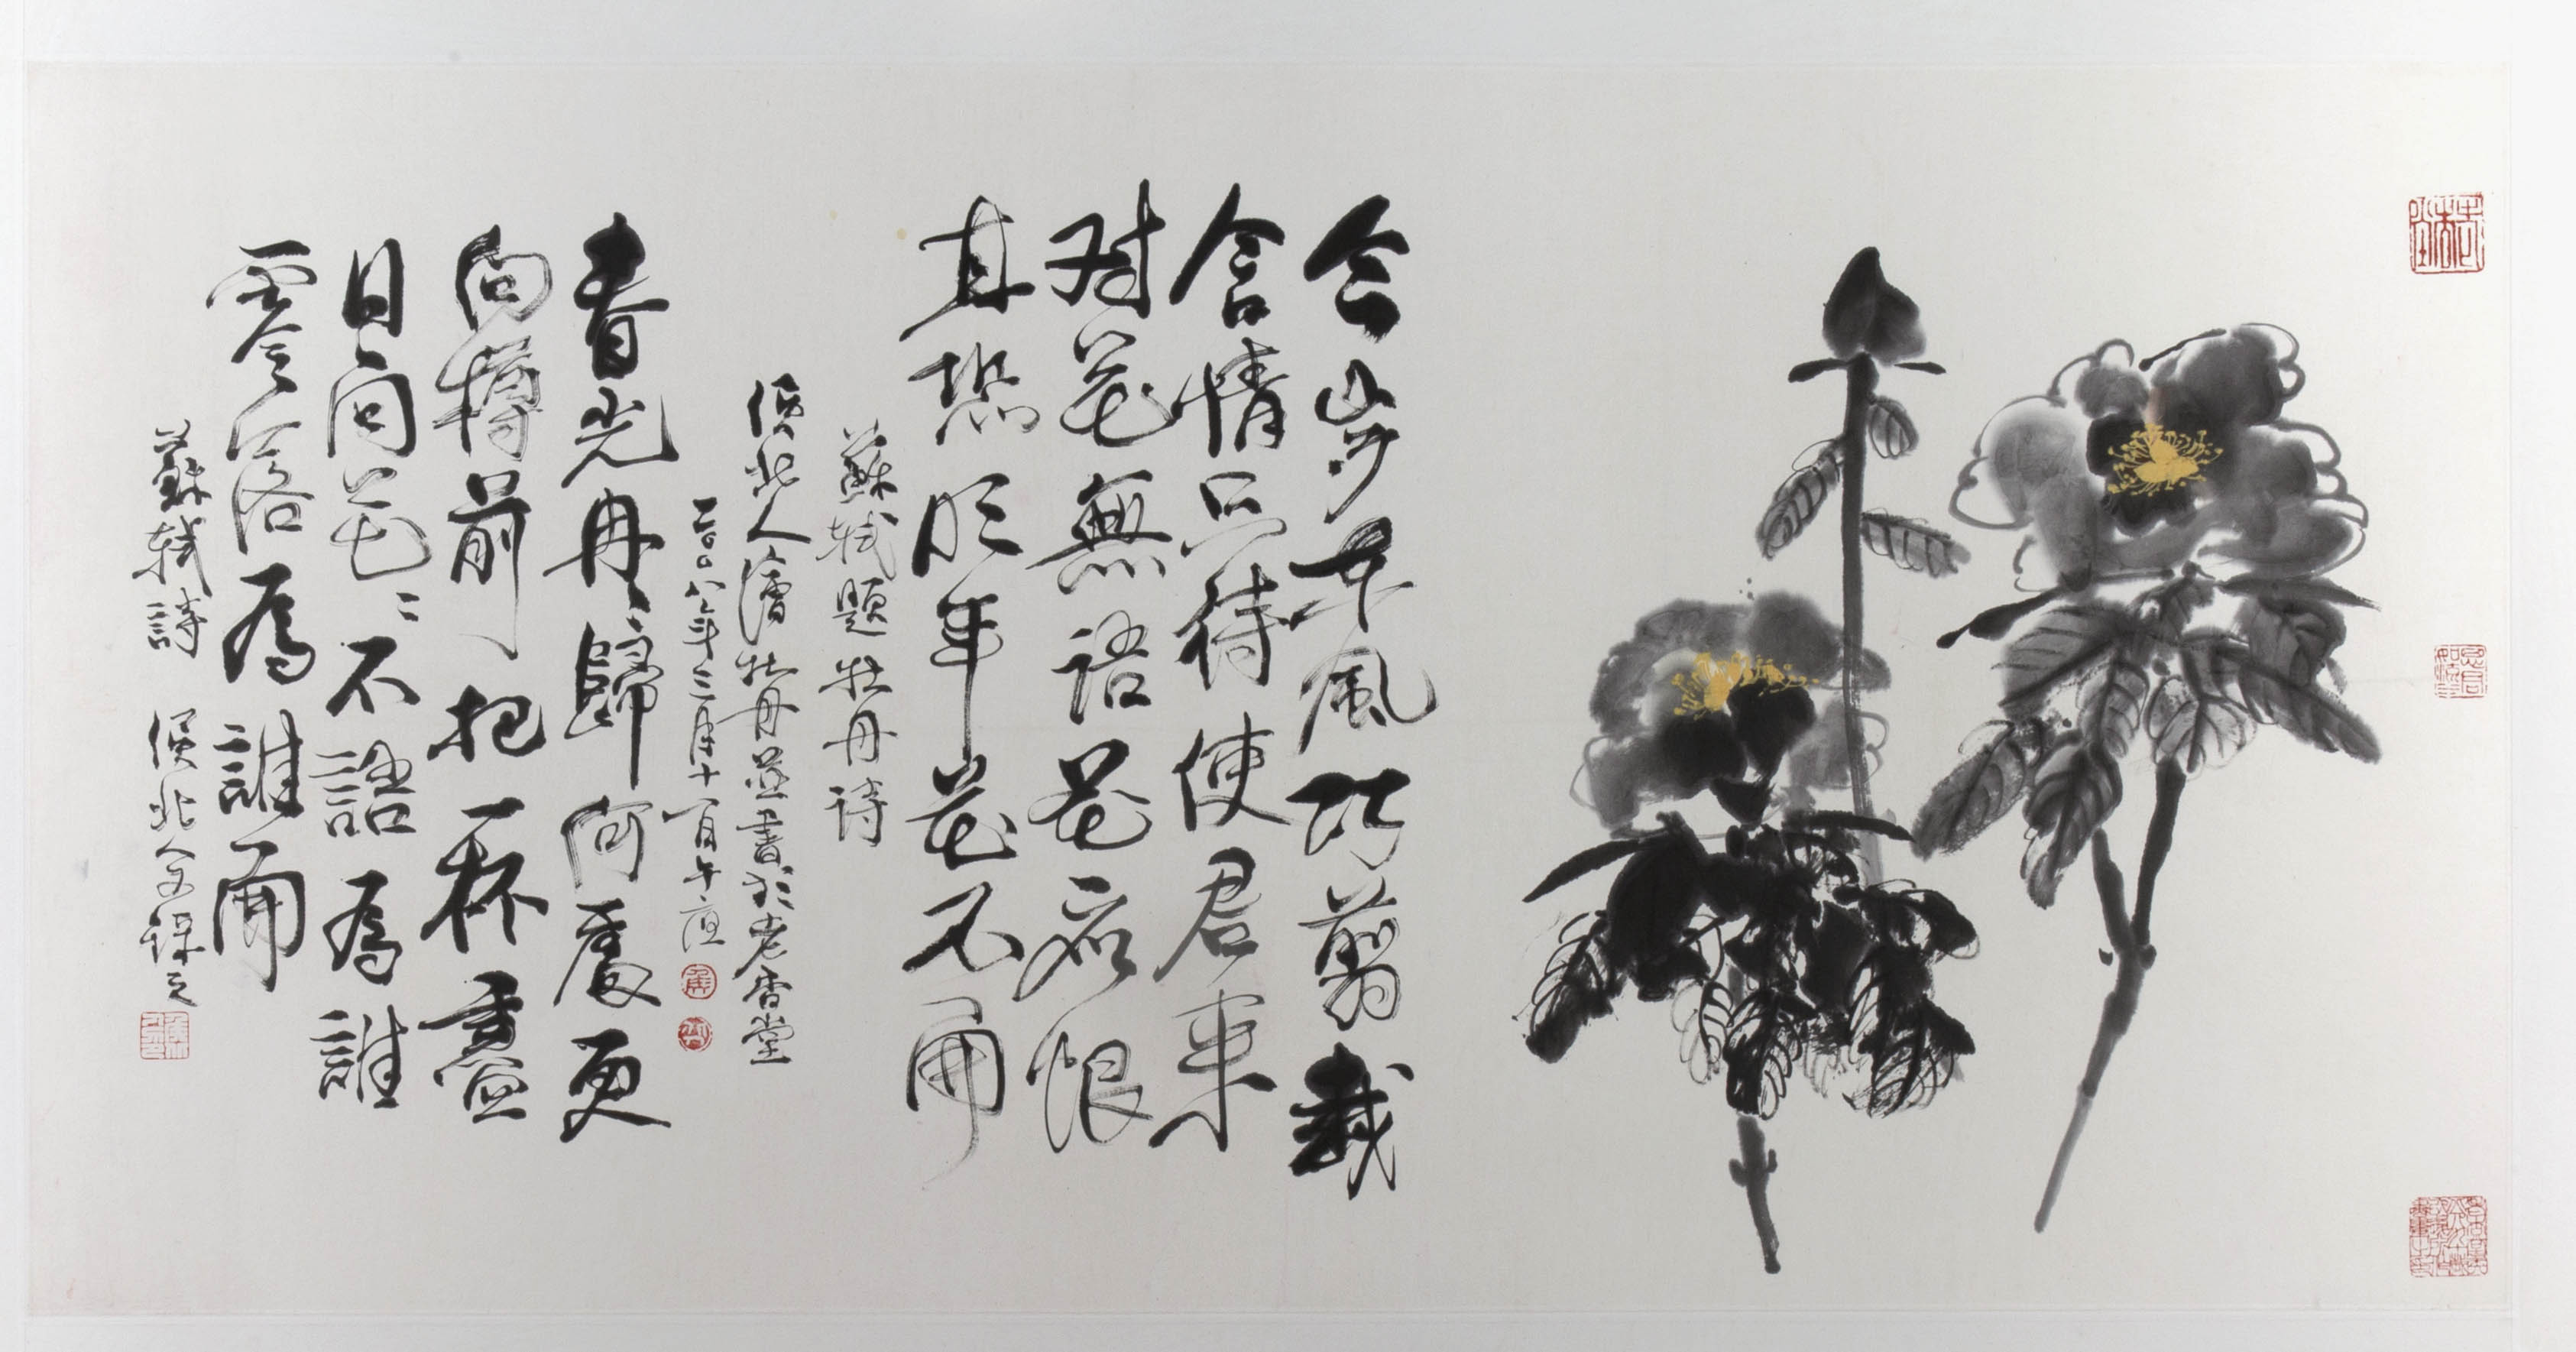 今歲東風巧剪裁
含情只待使君來
对花無語花應恨
直恐明年花不開
蘇軾題牡丹詩
侯北人繪牡丹並書於老杏堂
二〇〇八年三月十一日午夜
春光冉々歸何處更
向樽前把一杯盡
日問花々不語為誰
零落為誰開
蘇軾詩 侯北人又錄之